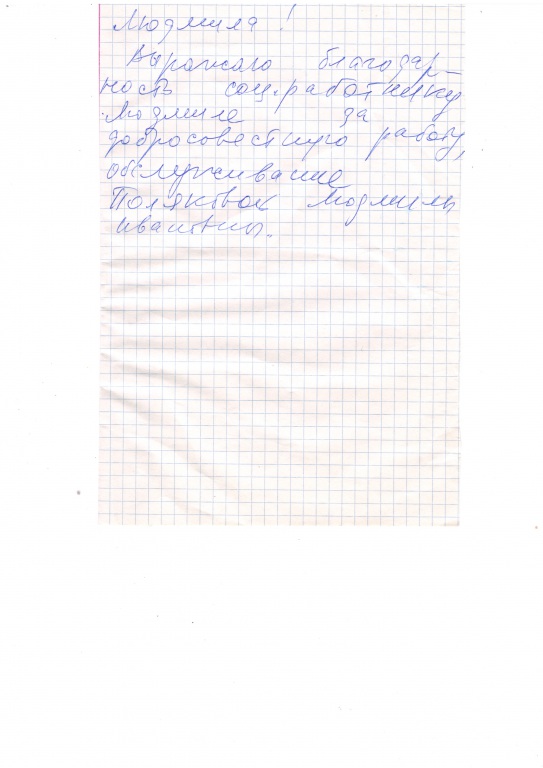 Людмила!
Выражаю благодар-
ность соц.работнику
Людмиле за
добросовестную работу,
обслуживание
Поляковой Людмилы
Ивановны.